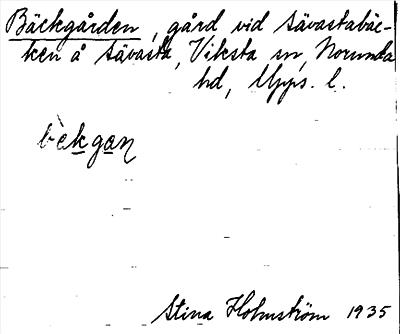 Bäckgården, gård vid Sävastabäc-
ken å Sävasta, Viksta sn, Norunda
hd, Upps. l.
bèkgan
Stina Holmström 1935